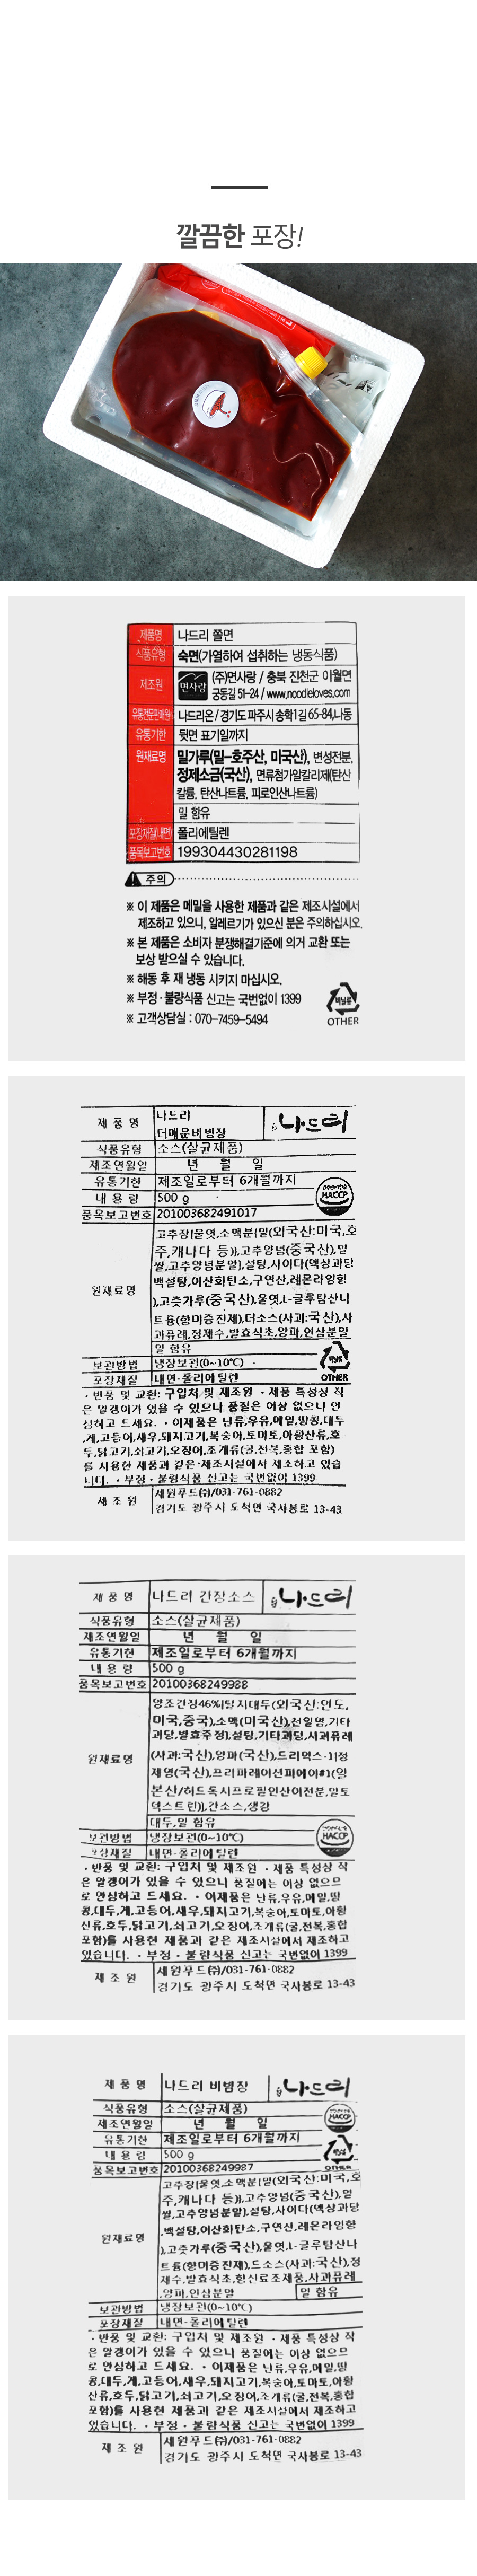 깔끔한 포장!
제품명 나드리 쫄면
식품유형 숙면(가열하여 섭취하는 냉동식품)
제조원 면사랑 (주)면사랑 / 충북 진천군 이월면
궁동길 51-24 / www.noodleloves.com
유통전문판매원 나드리온 / 경기도 파주시 송학1길 65-84,나동
유통기한 뒷면 표기일까지
원재료명 밀가루(밀-호주산, 미국산), 변성전분,
정제소금(국산), 면류첨가알칼리제(탄산
칼륨, 탄산나트륨, 피로인산나트륨)
밀 함유
포장재질(내면) 폴리에틸렌
품목보고번호 199304430281198
주의
※ 이 제품은 메밀을 사용한 제품과 같은 제조시설에서
제조하고 있으니, 알레르기가 있으신 분은 주의하십시오.
※ 본 제품은 소비자 분쟁해결기준에 의거 교환 또는
보상 받으실 수 있습니다.
※ 해동 후 재 냉동 시키지 마십시오.
※ 부정·불량식품 신고는 국번없이 1399
※ 고객상담실 : 070-7459-5494
비닐류
OTHER
제 품 명 나드리
더매운비빔장
나드리
식품유형 소스(살균제품)
제조연월일 년 월 일
유통기한 제조일로부터 6개월까지
내 용 량 500 g
HACCP
품목보고번호 201003682491017
원재료명 고추장[물엿,소맥분{밀(외국산:미국,호
주,캐나다 등)},고추양념(중국산),밀
쌀,고추양념분말],설탕,사이다(액상과당
백설탕,이산화탄소,구연산,레몬라임향
),고춧가루(중국산),물엿,L-글루탐산나
트륨(향미증진제),더소스(사과:국산),사
과퓨레,정제수,발효식초,양파,인삼분말
밀 함유
보관방법 냉장보관(0~10℃)
포장재질 내면-폴리에틸렌
OTHER
·반품 및 교환: 구입처 및 제조원 ·제품 특성상 작
은 알갱이가 있을 수 있으나 품질은 이상 없으니 안
심하고 드세요. ·이제품은 난류,우유,메밀,땅콩,대두
,게,고등어,새우,돼지고기,복숭아,토마토,아황산류,호
두,닭고기,쇠고기,오징어,조개류(굴,전복,홍합 포함)
를 사용한 제품과 같은 제조시설에서 제조하고 있습
니다. ·부정·불량식품 신고는 국번없이 1399
제 조 원 세원푸드㈜/031-761-0882
경기도 광주시 도척면 국사봉로 13-43
제 품 명 나드리 간장소스 나드리
식품유형 소스(살균제품)
제조연월일 년 월 일
유통기한 제조일로부터 6개월까지
내 용 량 500 g
품목보고번호 20100368249988
원재료명 양조간장46%[탈지대두(외국산:인도,
미국,중국),소맥(미국산),천일염,기타
과당,발효주정],설탕,기타과당,사과퓨레
(사과:국산),양파(국산),
대두,밀 함유
보관방법 냉장보관(0~10℃)
포장재질 내면-폴리에틸렌
HACCP
·반품 및 교환: 구입처 및 제조원 ·제품 특성상 작
은 알갱이가 있을 수 있으나 품질에는 이상 없으므
로 안심하고 드세요. ·이제품은 난류,우유,메밀,땅
콩,대두,게,고등어,새우,돼지고기,복숭아,토마토,아황
산류,호두,닭고기,쇠고기,오징어,조개류(굴,전복,홍합
포함)를 사용한 제품과 같은 제조시설에서 제조하고
있습니다. ·부정·불량식품 신고는 국번없이 1399
제 조 원 세원푸드㈜/031-761-0882
경기도 광주시 도척면 국사봉로 13-43
제 품 명 나드리 비빔장 나드리
식품유형 소스(살균제품)
제조연월일 년 월 일
유통기한 제조일로부터 6개월까지
내 용 량 500 g
HACCP
OTHER
품목보고번호 20100368249987
원재료명 고추장[물엿,소맥분{밀(외국산:미국,호
주,캐나다 등)},고추양념(중국산),밀
쌀,고추양념분말],설탕,사이다(액상과당
,백설탕,이산화탄소,구연산,레몬라임향
),고춧가루(중국산),물엿,L-글루탐산나
트륨(향미증진제),드소스(사과:국산),정
제수,발효식초,향신료조제품,사과퓨레
,양파,인삼분말 밀 함유
보관방법 냉장보관(0~10℃)
포장재질 내면-폴리에틸렌
·반품 및 교환: 구입처 및 제조원 ·제품 특성상 작
은 알갱이가 있을 수 있으나 품질에는 이상 없으므
로 안심하고 드세요. ·이제품은 난류,우유,메밀,땅
콩,대두,게,고등어,새우,돼지고기,복숭아,토마토,아황
산류,호두,닭고기,쇠고기,오징어,조개류(굴,전복,홍합
포함)를 사용한 제품과 같은 제조시설에서 제조하고
있습니다. ·부정·불량식품 신고는 국번없이 1399
제 조 원 세원푸드㈜/031-761-0882
경기도 광주시 도척면 국사봉로 13-43